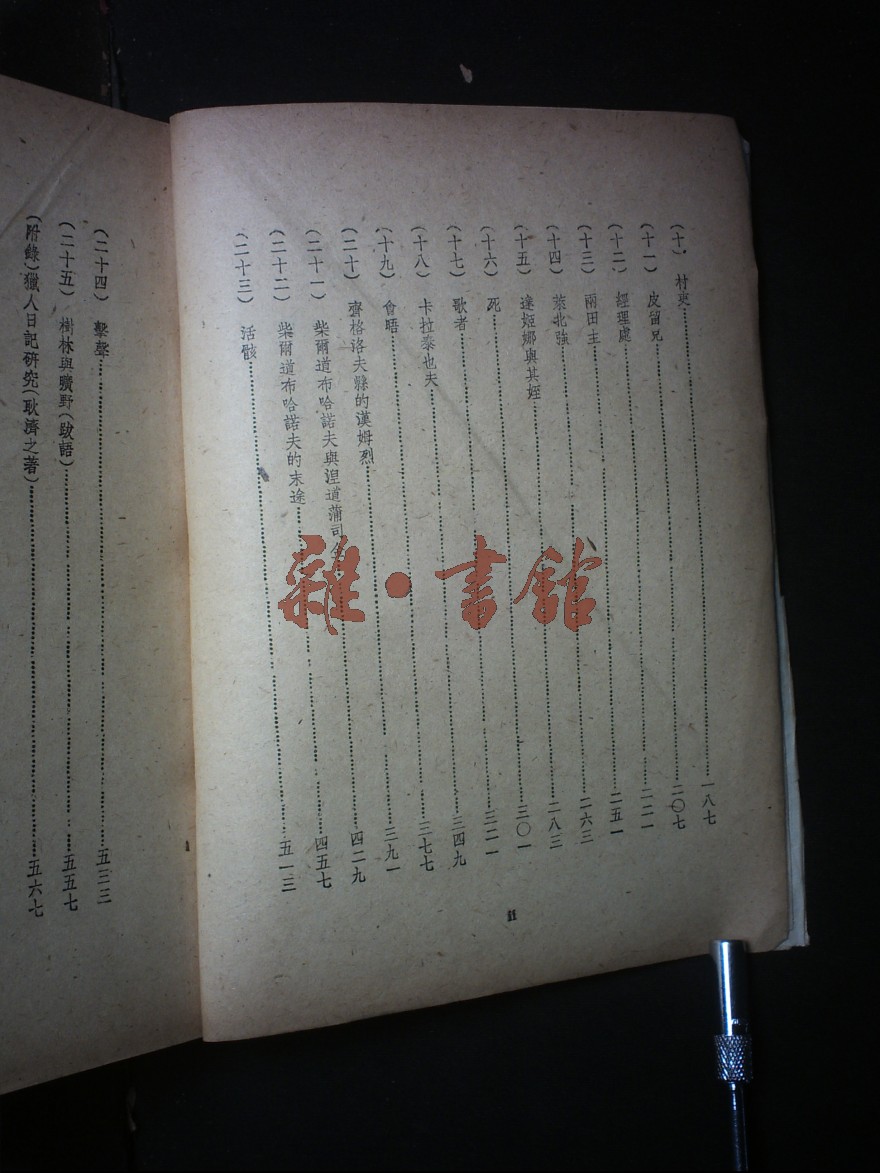 (十) 村吏⋯⋯一八七
(十一) 皮留兄⋯⋯二〇七
(十二) 經理處⋯⋯二二一
(十三) 兩田主⋯⋯二五一
(十四) 萊北強⋯⋯二六三
(十五) 達姬娜與其姪⋯⋯二八三
(十六) 死⋯⋯三〇一
(十七) 歌者⋯⋯三二一
(十八) 卡拉泰也夫⋯⋯三四九
(十九) 會晤⋯⋯三七七
(二十) 齊格洛夫縣的漢姆烈⋯⋯三九一
(二十一) 柴爾道布哈諾夫與湼道蒲司⋯⋯四二九
(二十二) 柴爾道布哈諾夫的末途⋯⋯四五七
(二十三) 活骸⋯⋯五一三
II
(二十四) 擊聲⋯⋯五三三
(二十五) 樹林與曠野(跋語)⋯⋯五五七
(附錄)獵人日記研究(耿濟之著)⋯⋯五六七
雜·書館